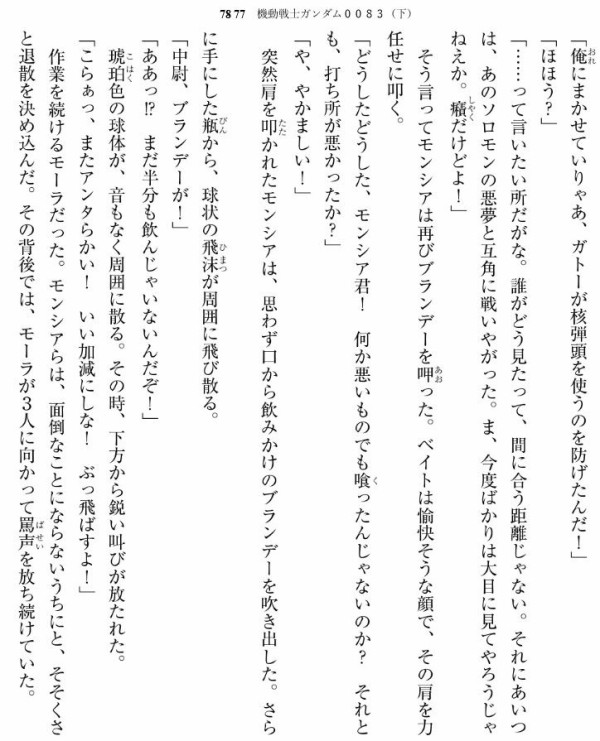 78 77　機動戦士ガンダム００８３（下）
「俺にまかせていりゃあ、ガトーが核弾頭を使うのを防げたんだ！」
「ほほう？」
「……って言いたい所だがな。誰がどう見たって、間に合う距離じゃない。それにあいつ
は、あのソロモンの悪夢と互角に戦いやがった。ま、今度ばかりは大目に見てやろうじゃ
ねえか。癪だけどよ！」
そう言ってモンシアは再びブランデーを呷った。ベイトは愉快そうな顔で、その肩を力
任せに叩く。
「どうしたどうした、モンシア君！　何か悪いものでも喰ったんじゃないのか？　それと
も、打ち所が悪かったか？」
「や、やかましい！」
突然肩を叩かれたモンシアは、思わず口から飲みかけのブランデーを吹き出した。さら
に手にした瓶から、球状の飛沫が周囲に飛び散る。
「中尉、ブランデーが！」
「ああっ!?　まだ半分も飲んじゃいないんだぞ！」
琥珀色の球体が、音もなく周囲に散る。その時、下方から鋭い叫びが放たれた。
「こらぁっ、またアンタらかい！　いい加減にしな！　ぶっ飛ばすよ！」
作業を続けるモーラだった。モンシアらは、面倒なことにならないうちにと、そそくさ
と退散を決め込んだ。その背後では、モーラが３人に向かって罵声を放ち続けていた。